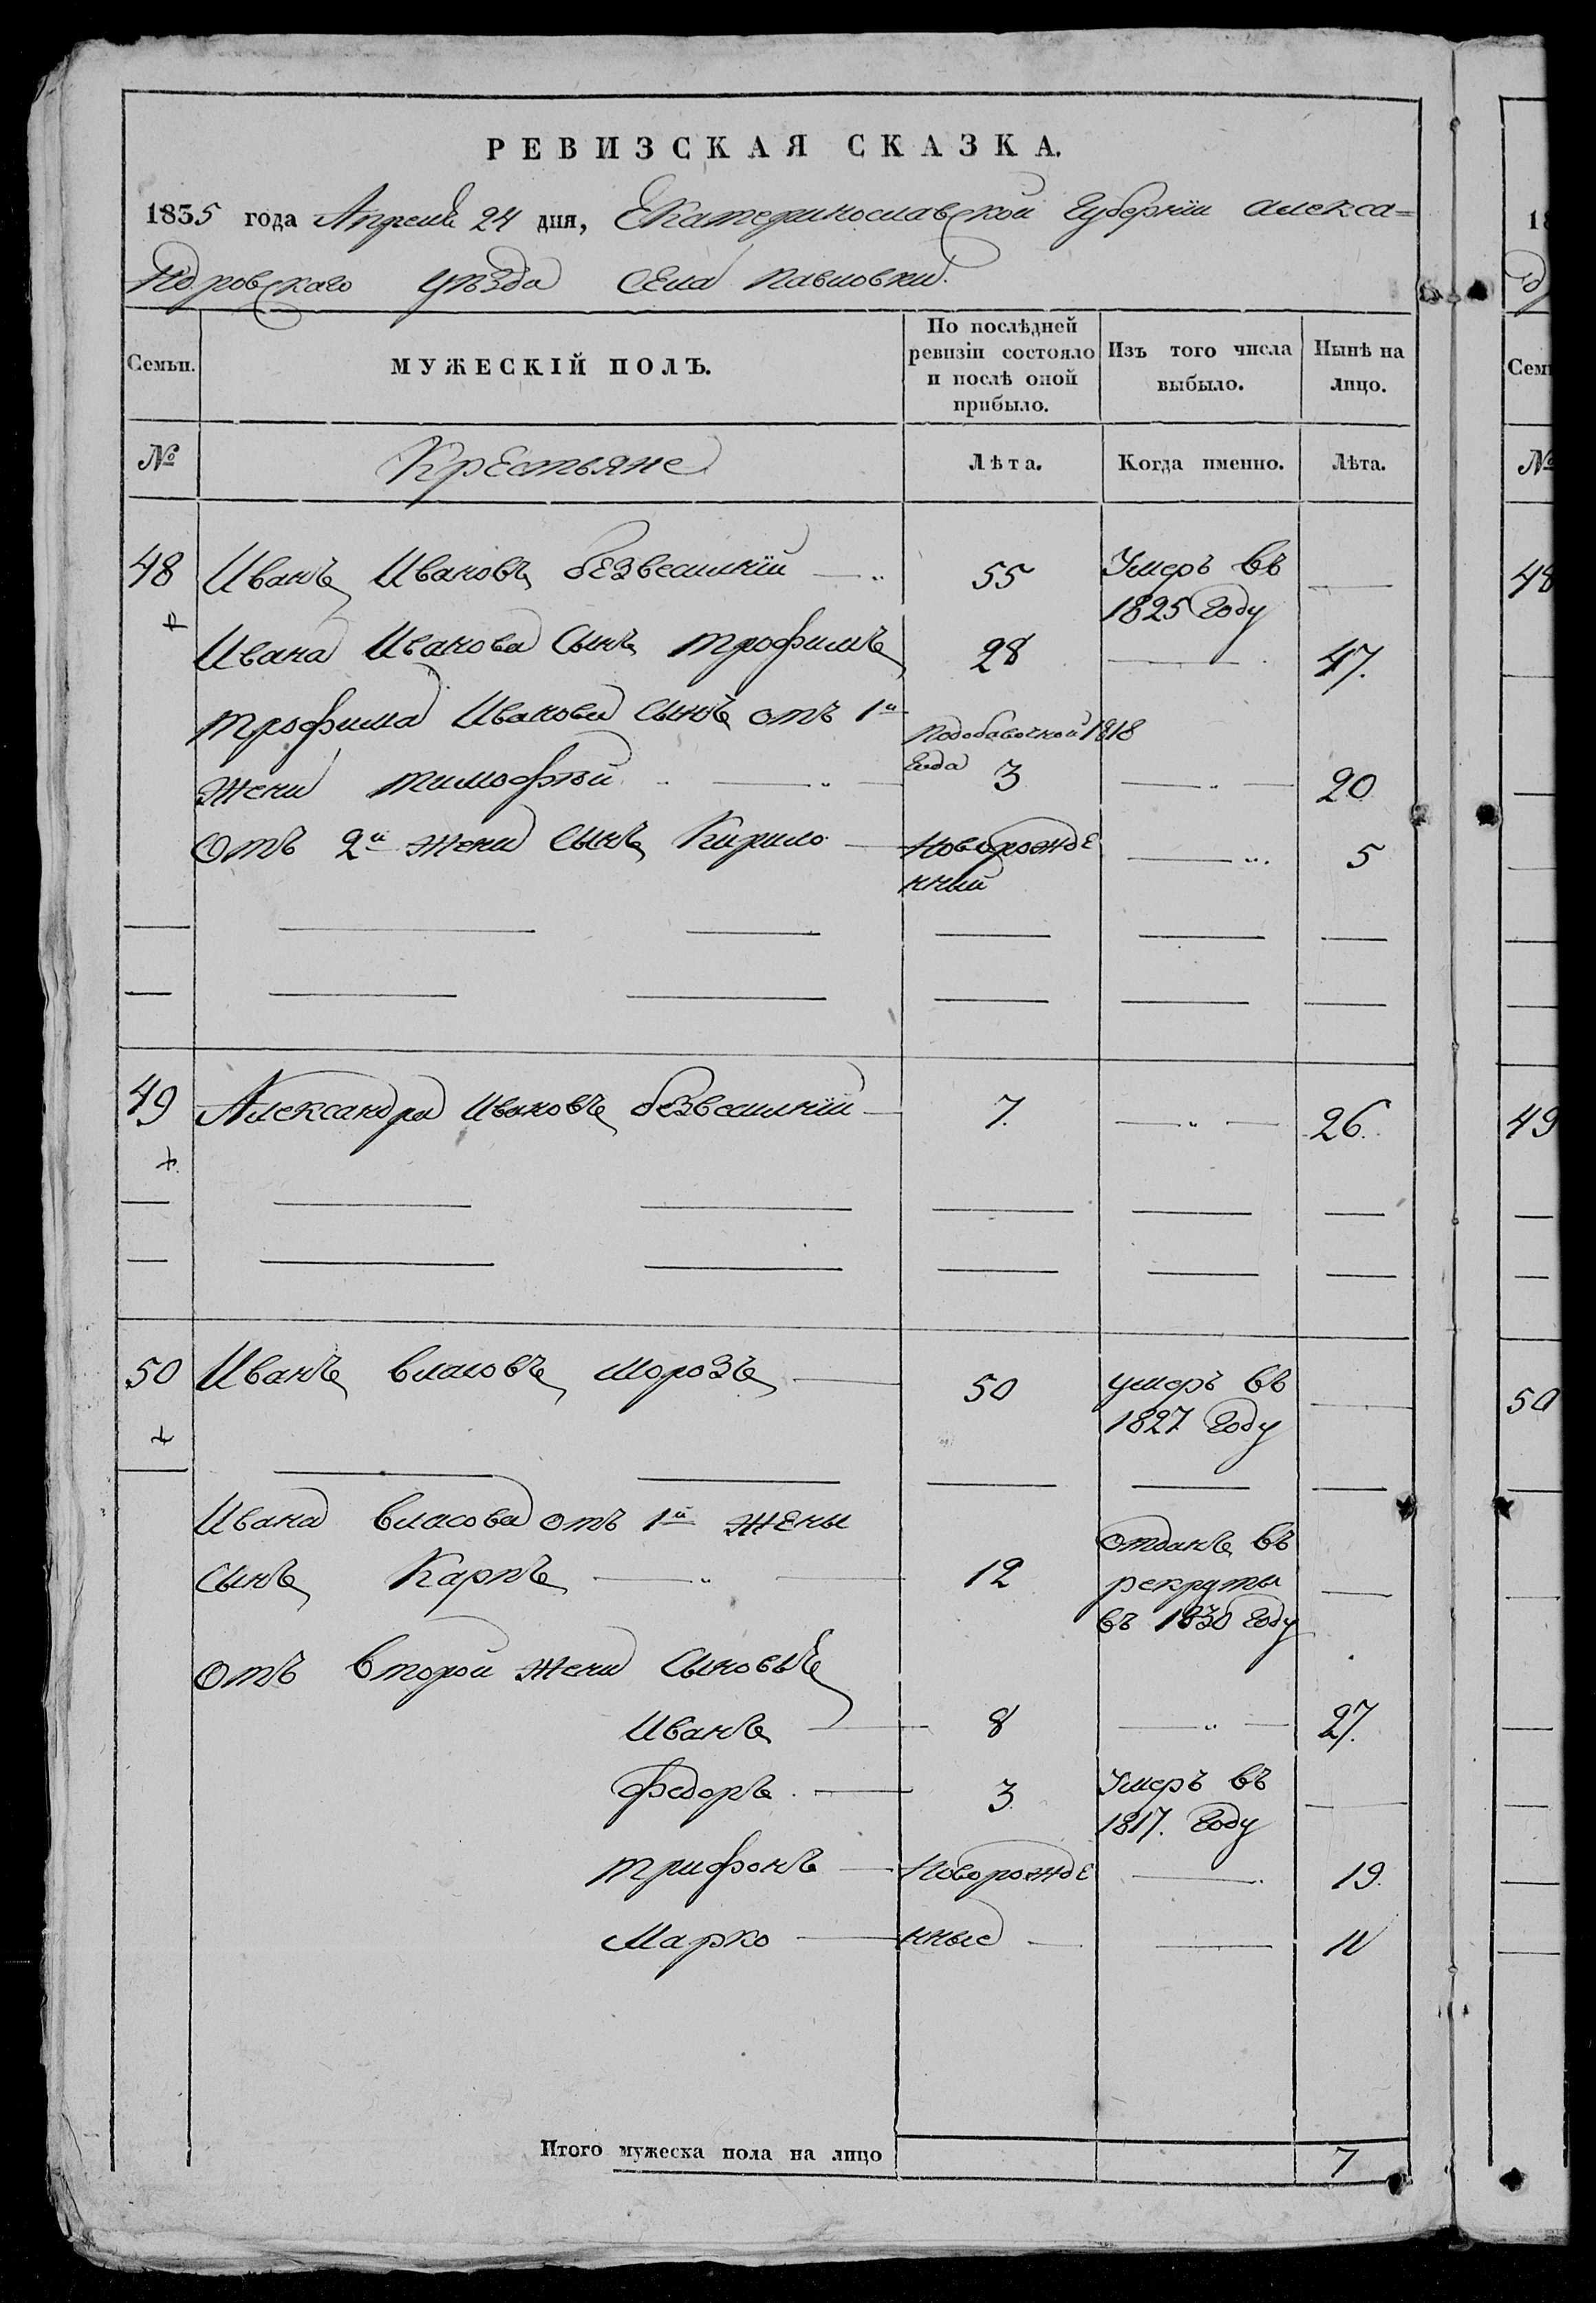 РЕВИЗСКАЯ СКАЗКА.
1835 года Апреля 24 дня, Екатеринославской Губернїи алекса=
ндровскаго уѣзда села павловки.
Семьи. МУЖЕСКІЙ ПОЛЪ. По послѣдней ревизіи состояло и послѣ оной прибыло. Изъ того числа выбыло. Нынѣ на лицо. Семь
№ Крестьяне Лѣта. Когда именно. Лѣта. №
48 Иванъ Ивановъ безвесилнїй 55 Умеръ въ 48
1825 Году
Ивана Иванова Сынъ трофимъ 28 47.
трофима Иванова Сынъ отъ 1й Подобавочной 1818
жени тимофѣй Года 3 20
Отъ 2й жени Сынъ Кирило Новорожде 5
нний
49 Александра Ивановъ безвесилнїй 7. 26. 49
50 Иванъ власовъ морозъ 50 умеръ въ 50
1827 Году
Ивана власова отъ 1й жены отданъ въ
сынъ Карпъ 12 рекруты
въ 1830 Году
отъ второй жени Сыновья
Иванъ 8 27.
федоръ 3 Умеръ въ
1817. Году
трифонъ Новорожде 19.
Марко нные 11
Итого мужеска пола на лицо 7